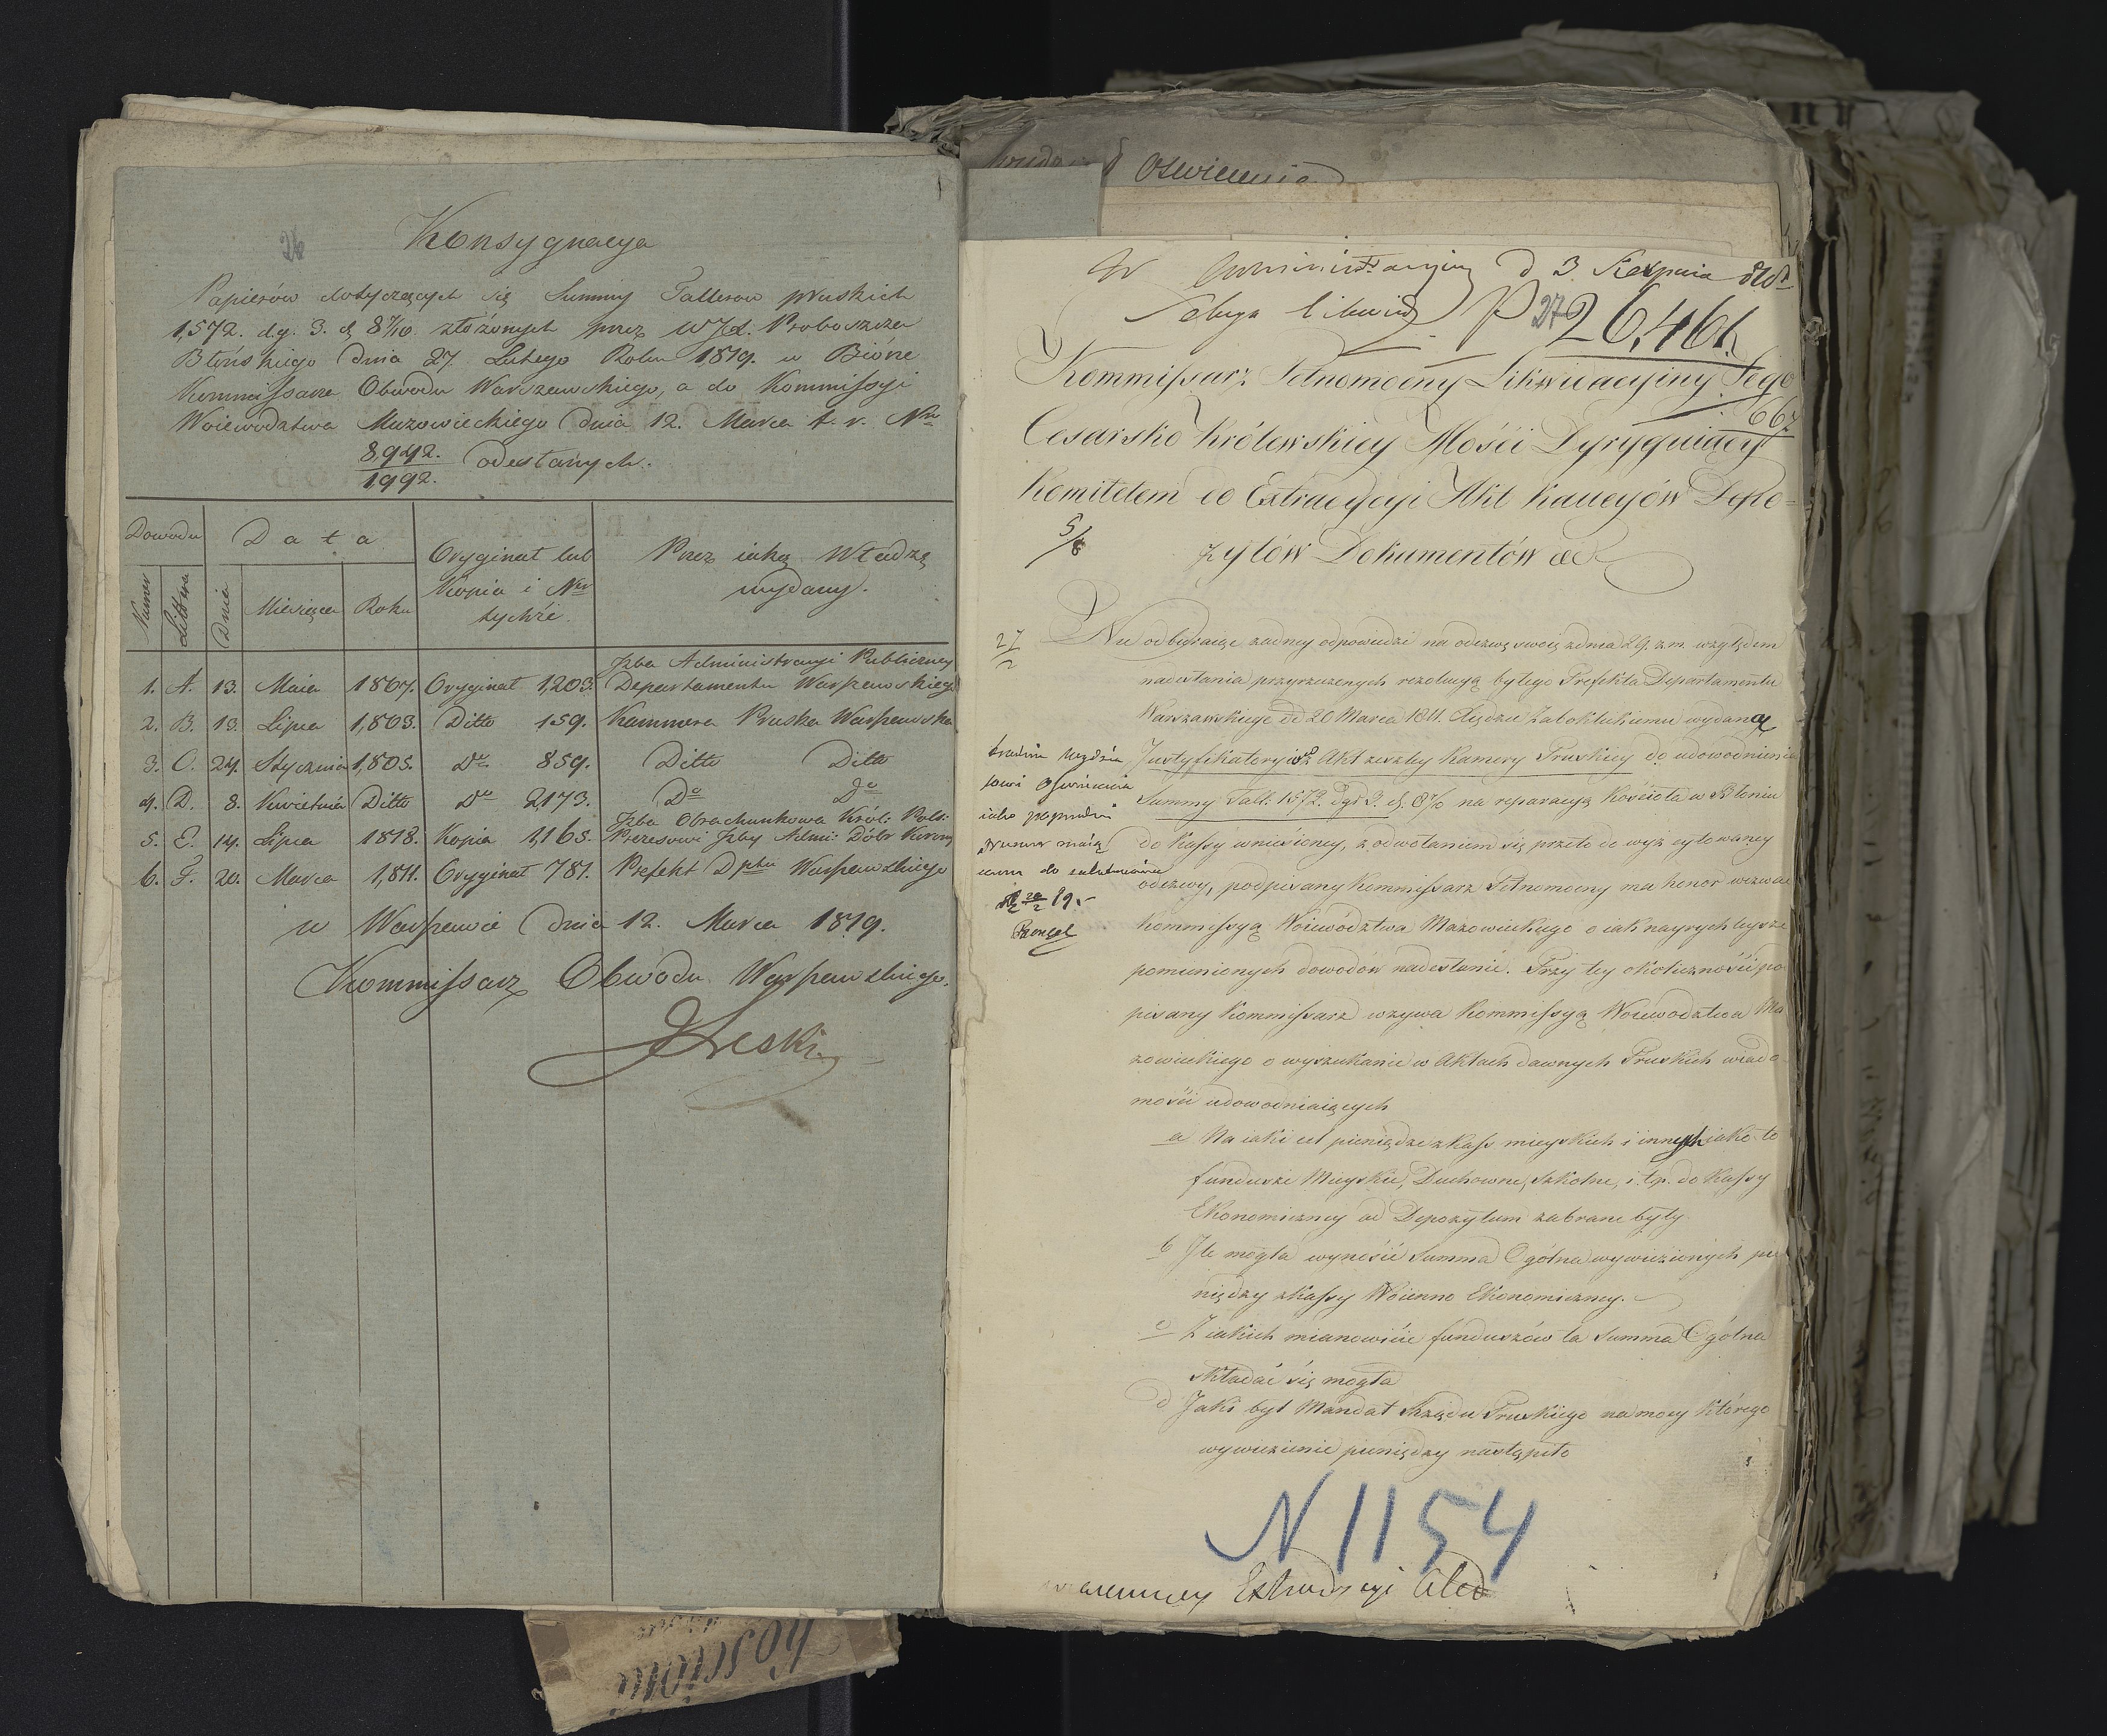 26
Konsygnacya
Papierów dotyczących się Summy Tallerow pruskich
1,572. dg. 3. d 8 7/10. złożonych przez WJX. Proboszcza
Błońskiego dnia 27. Lutego Roku 1819. w Biórze
Kommissarza Obwodu Warszawskiego, a do Kommissyi
Woiewodztwa Mazowieckiego dnia 12. Marca t. r. Nro
8,942.
1992.
odesłanych.
Dowodu
Data
Oryginał lub
Kopia i Nro
tychże.
Przez iaką Władzę
wydany.
Numer
Littera
Dnia
Miesiąca
Roku
Izba Administracyi Publiczney
1. A. 13. Maia 1807. Oryginał 1,203. Departamentu Warszawskiego
2. B. 13. Lipca 1,803. Ditto 159. Kammera Pruska Warszawska
3. C. 24. Stycznia 1,805. Do 859. Ditto Ditto
4. D. 8. Kwietnia Ditto Do 2,173. Do Do
Izba Obrachunkowa Król: Pols:
5. E. 14. Lipca 1818. Kopia 1,163. Prezesowi Izby Admi: Dóbr Koron
6. F. 20. Marca 1,811. Oryginał 781. Prefekt Dptu Warszawskiego
w Warszawie dnia 12. Marca 1819.
Kommissarz Obwodu Warszawskiego.
Oswiecenia
d 3 Sierpnia
27
26,461.
667.
Kommissarz Pełnomocny Likwidacyiny Jego
Cesarsko Królewskiey Mości Dyryguiący
Komitetem do Extradycyi Akt Kaucyów Depo-
zytów Dokumentów &c
5/8
27/2
Nie odbieraiąc żadney odpowiedzi na odezwę swoię z dnia 29. z.m. względem
nadesłania przyrzeczonych rezolucyą byłego Prefekta Departamentu
Warszawskiego dd 20 Marca 1811. Xiędzu Zabokluckiemu wydaną
Justyfikatoryiów z Akt zeszłey Kamery Pruskiey do udowodnienia
Summy Tall: 1572. dgr 3. d. 8 7/10 na reparacyą Kościoła w Błoniu
do Kassy wniesioney, z odwołaniem się przeto do wyż cytowaney
odezwy, podpisany Kommissarz Pełnomocny ma honor wezwać
Kommissyą Woiewództwa Mazowieckiego o iak nayrychleysze
pomienionych dowodów nadesłanie. Przy tey okoliczności pod
pisany Kommissarz wzywa Kommissyą Woiewodztwa Ma
zowieckiego o wyszukanie w Aktach dawnych Pruskich wiado
mości udowodniaiących
a Na iaki cel pieniądze z Kass mieyskich i innych iako to
fundusze Mieyskie, Duchowne, Szkolne, i.t.p. do Kassy
Ekonomiczney ad Depozytum zabrane były
b Ile mogła wynosić Summa Ogólna wywiezionych pie
niędzy z Kassy Woienno Ekonomiczney.
c Z iakich mianowicie funduszów ta Summa Ogólna
składać się mogła
d Jaki był Mandat Rządu Pruskiego na mocy którego
wywiezienie pieniędzy nastąpiło
N 1154
Extradycyi Akt